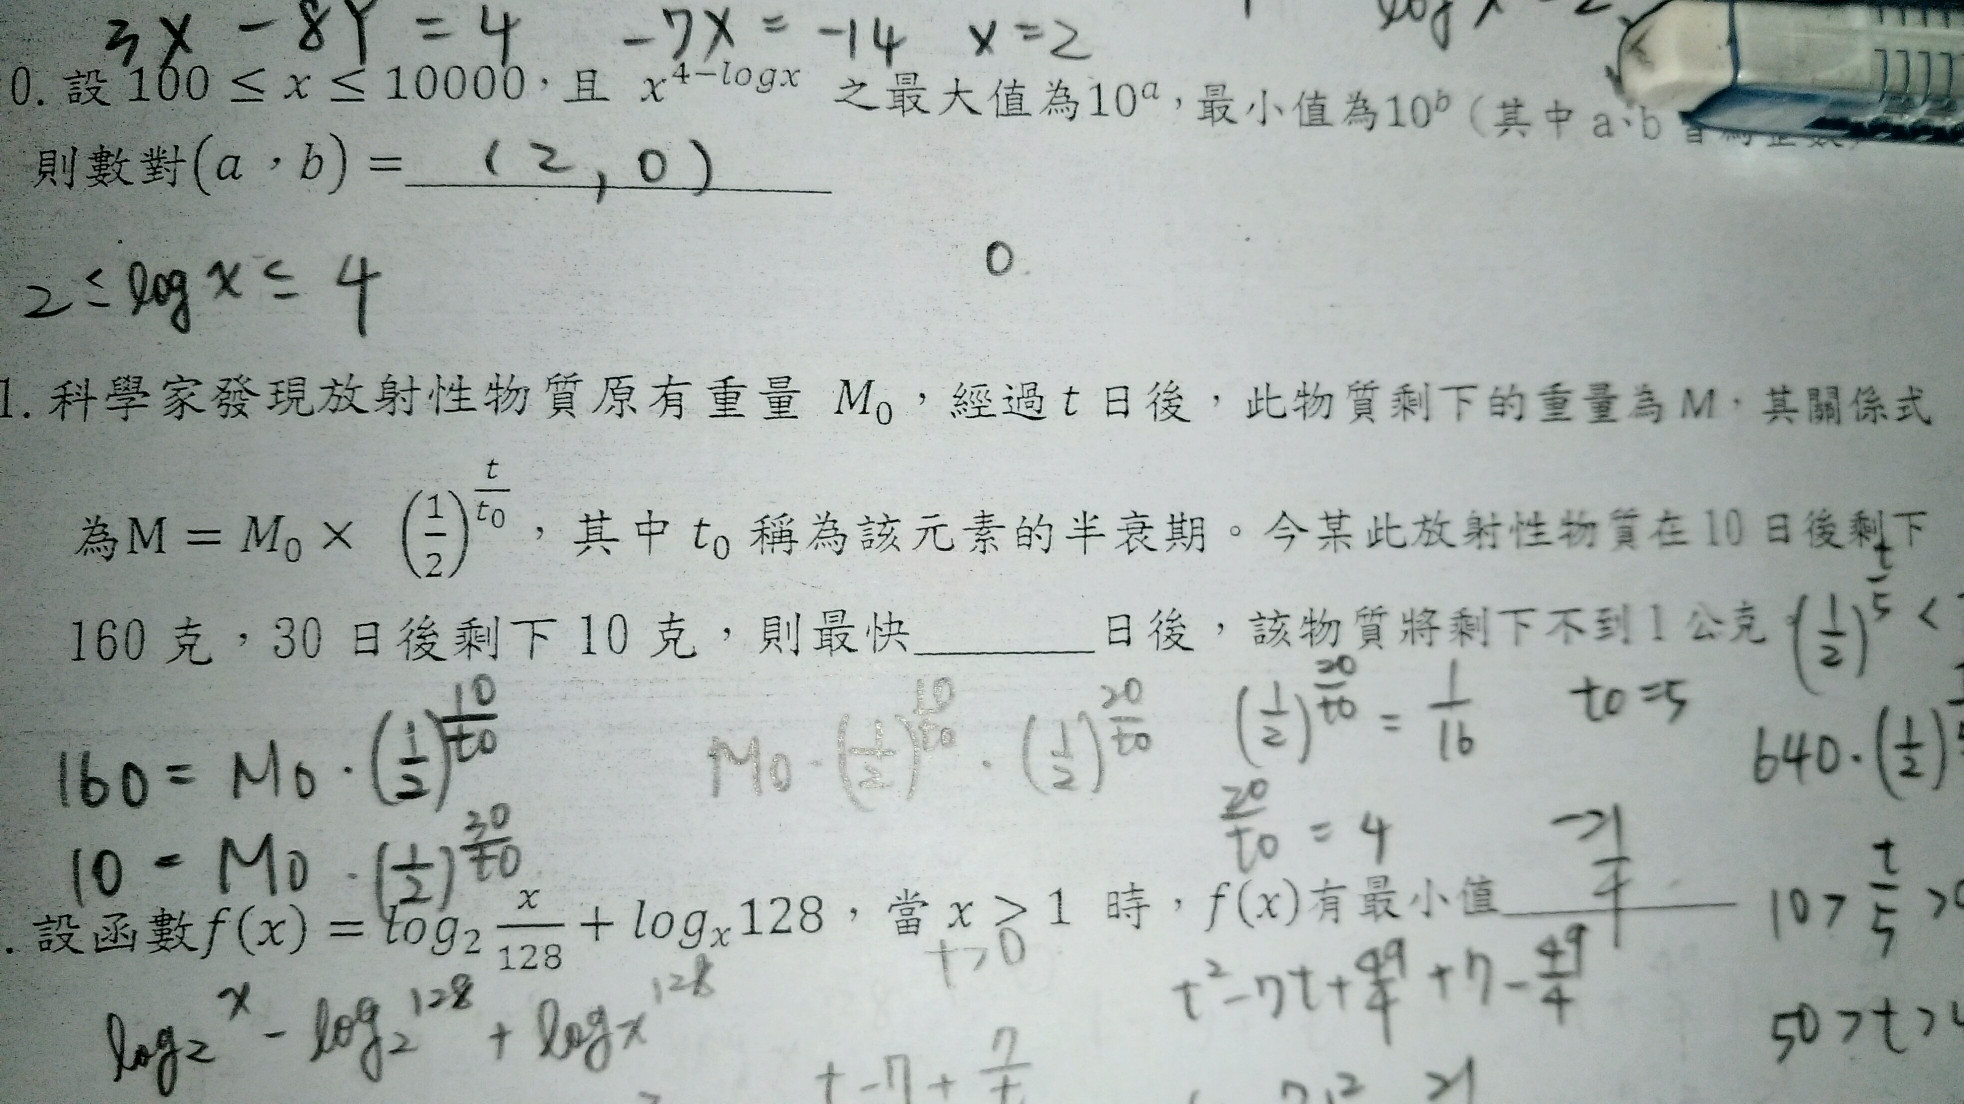 3X - 8Y = 4 -7X = -14 X = 2
0. 設 100 ≤ x ≤ 10000，且 x^{4-logx} 之最大值為10^a，最小值為10^b（其中 a、b
則數對(a，b) = (2, 0)
0
2 ≤ log x ≤ 4
1. 科學家發現放射性物質原有重量 M₀，經過 t 日後，此物質剩下的重量為 M，其關係式
為M = M₀ × (1/2)^{t/t₀}，其中 t₀ 稱為該元素的半衰期。今某此放射性物質在 10 日後剩下
160 克，30 日後剩下 10 克，則最快______日後，該物質將剩下不到 1 公克 (1/2)^{t/5} <
160 = M0 · (1/2)^{10/t0} M0 · (1/2)^{10/t0} · (1/2)^{20/t0} (1/2)^{20/t0} = 1/16 t0 = 5
640 · (1/2)
10 = M0 · (1/2)^{30/t0} 20/t0 = 4
. 設函數f(x) = log₂ x/128 + logₓ128，當 x > 1 時，f(x)有最小值 -21/4 10 > t/5 >
t > 0
log₂x - log₂128 + logx128 t² - 7t + 49/4 + 7 - 49/4 50 > t >
t - 7 + 7/t